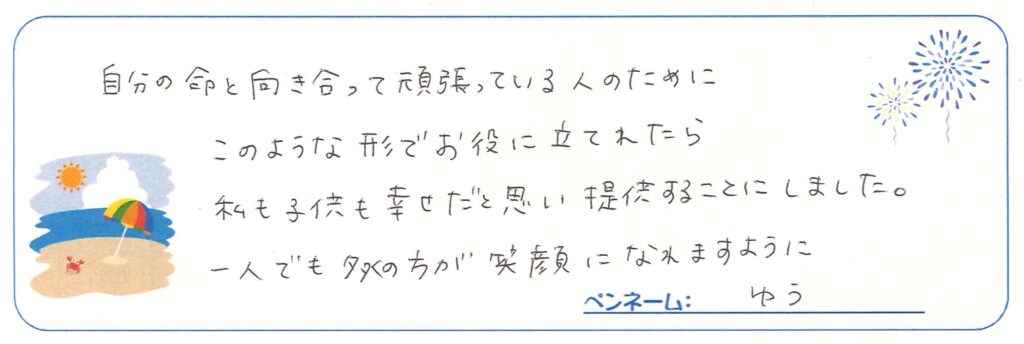 自分の命と向き合って頑張っている人のために
このような形でお役に立てれたら
私も子供も幸せだと思い提供することにしました。
一人でも多くの方が笑顔になれますように
ペンネーム: ゆう